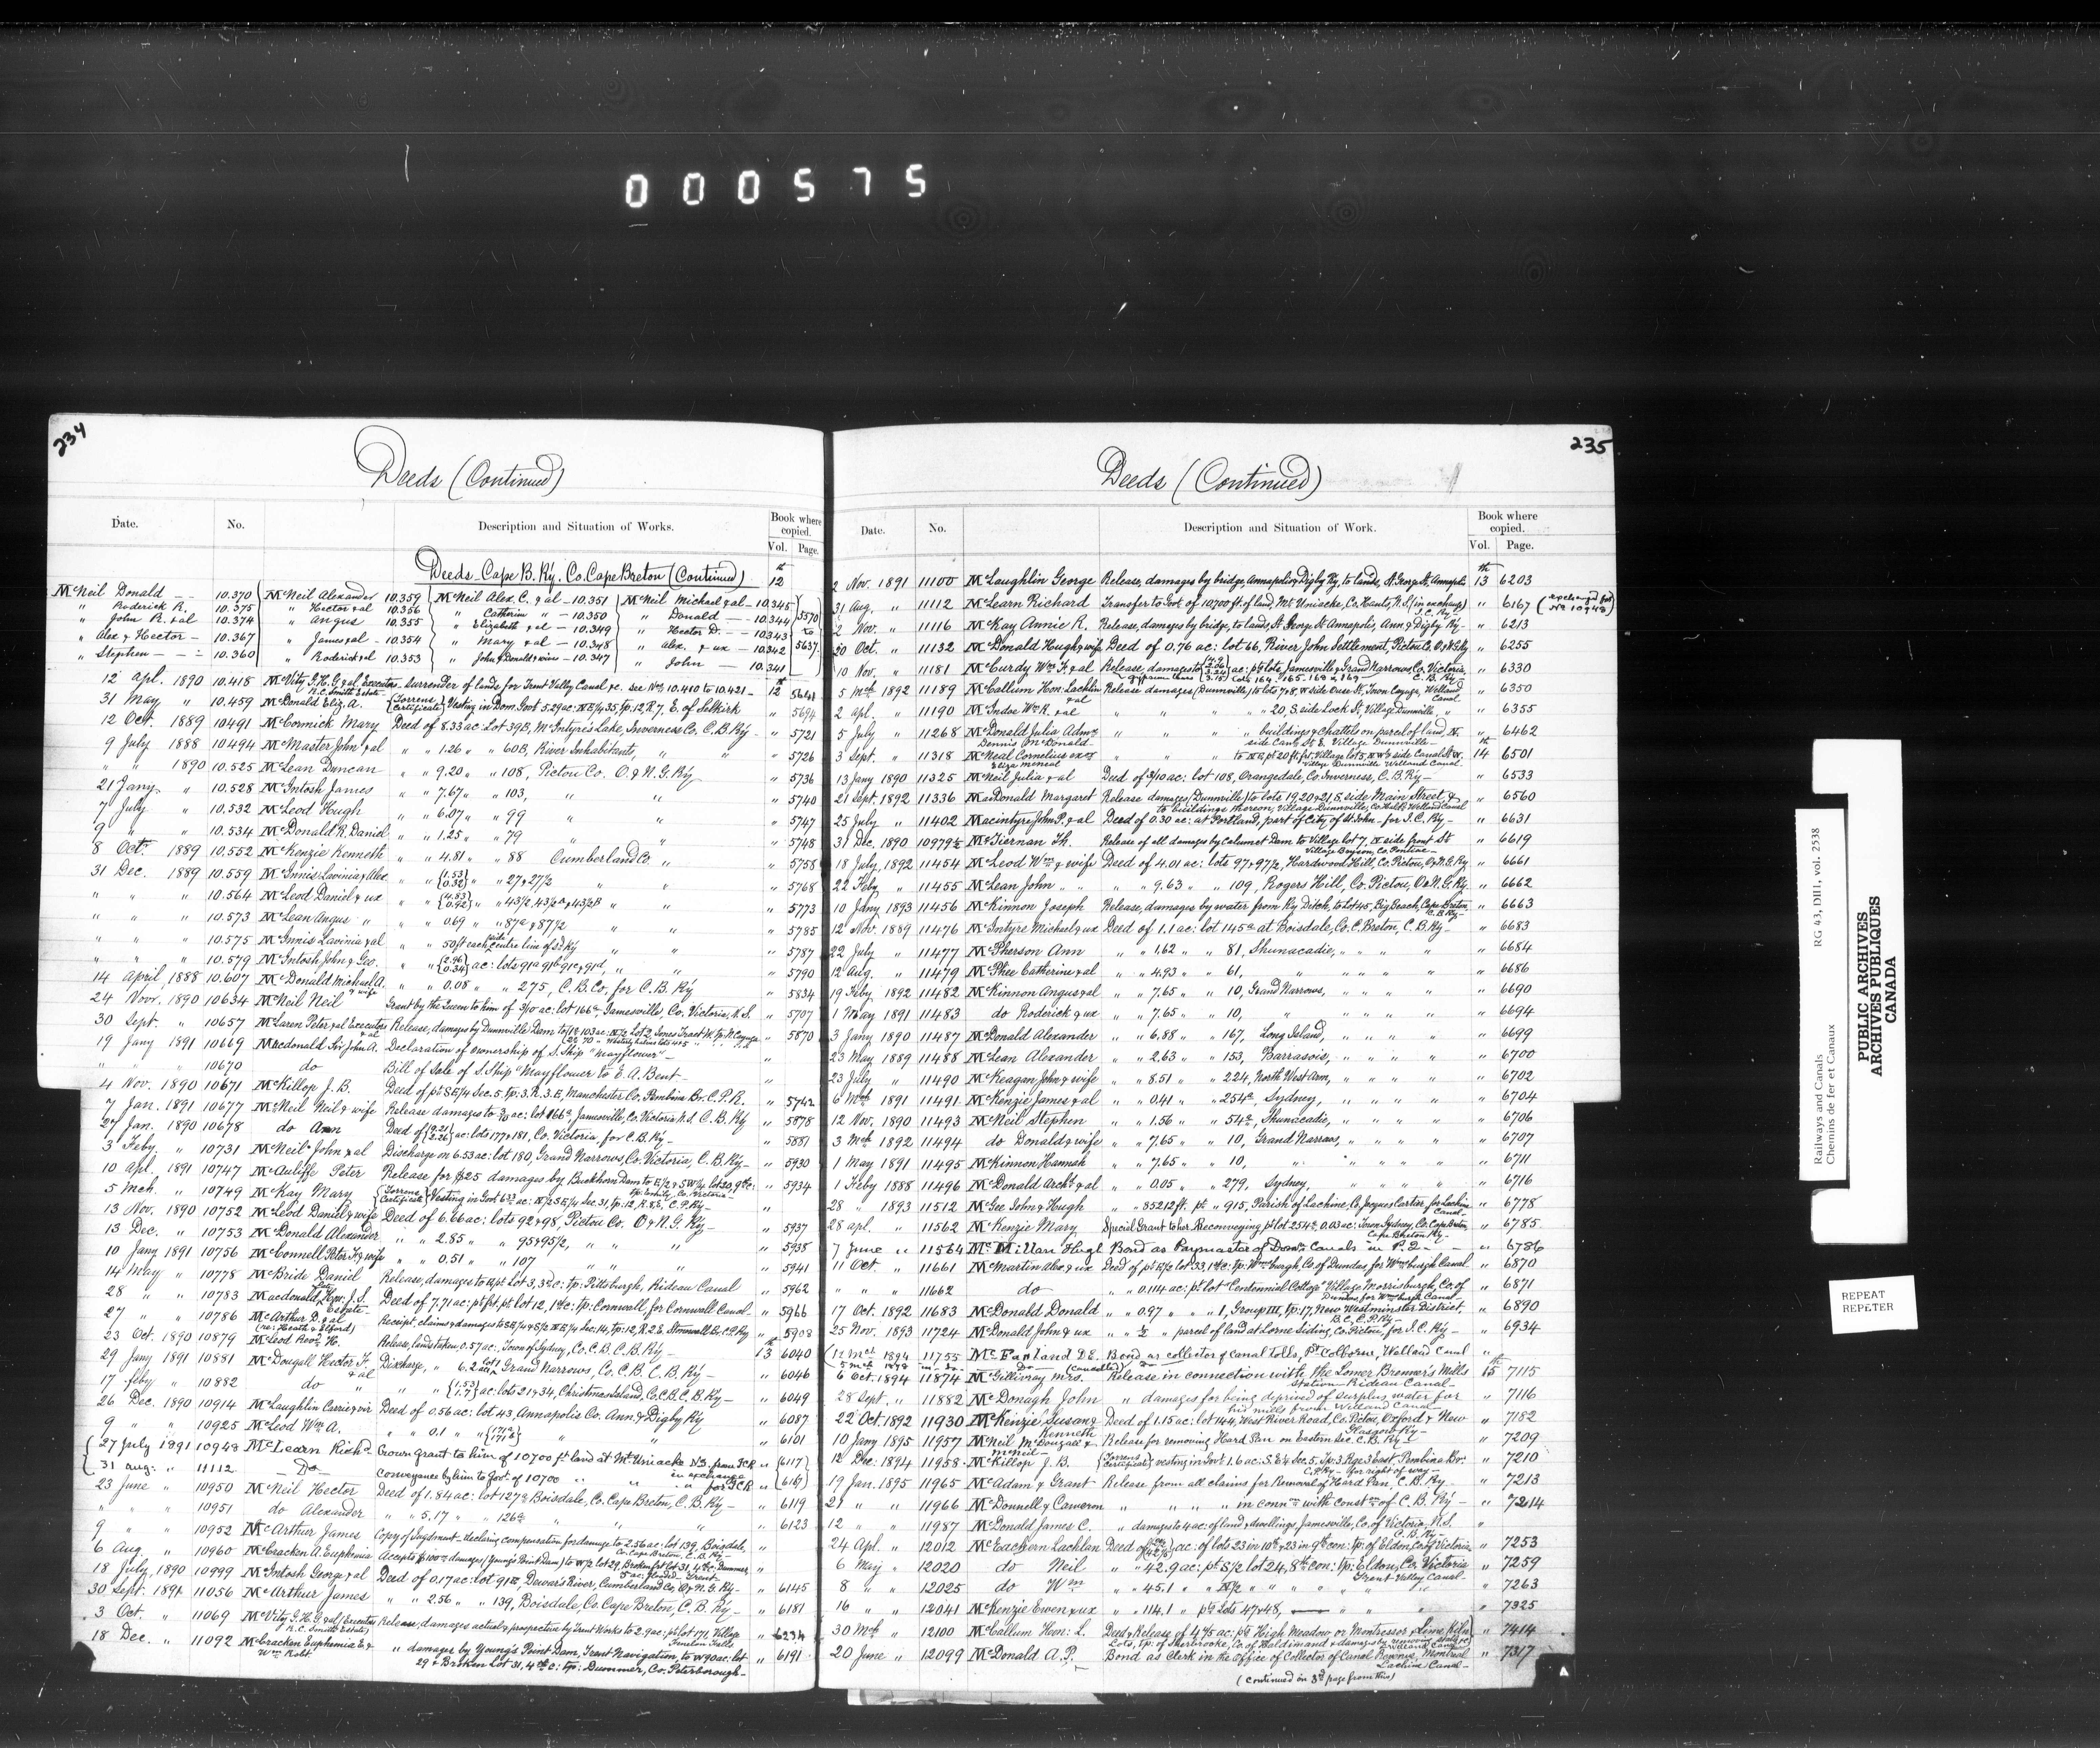 000575
234
Deeds (Continued)
Date. No. Description and Situation of Works. Book where copied. Vol. Page.
Deeds Cape B. Ry. Co. Cape Breton (Continued) 12th
McNeil Donald — 10.370 McNeil Alexander 10.359 McNeil Alex. C. & al — 10.351 McNeil Michael & al — 10.345
" Roderick R. 10.375 " Hector & al 10.356 " Catherin — 10.350 " Donald — 10.344 5570
" John R. & al 10.374 " Angus 10.355 " Elizabeth & al — 10.349 " Hector D. — 10.343 to
" Alex & Hector — 10.367 " James & al — 10.354 " Mary & al — 10.348 " Alex. & ux — 10.342 5637
" Stephen — 10.360 " Roderick & al 10.353 " John & Donald & wives — 10.347 " John — 10.341
12 Apl. 1890 10.418 McVity G.H.G. & al Executors R.C. Smith Estate — Surrender of lands for Trent Valley Canal &c. see Nos. 10.410 to 10.421 — 12th 5641
31 May " 10.459 McDonald Eliz. A. & al {Torrens Certificate} Vesting in Dom. Govt. 5.29 ac: NE 1/4 35, tp. 12, R. 7, E. of Selkirk " 5694
12 Oct. 1889 10491 McCormick Mary Deed of 8.33 ac: Lot 39B, McIntyre's Lake, Inverness Co. C.B. Ry — " 5721
9 July 1888 10.494 McMaster John & al " " 1.26 " " 60B, River Inhabitants, " " " 5726
" " 1890 10.525 McLean Duncan " " 9.20 " " 108, Pictou Co. O. & N.G. Ry " 5736
21 Jany. " 10.528 McIntosh James " " 7.67 " " 103, " " " 5740
7 July " 10.532 McLeod Hugh " " 6.07 " " 99 " " " 5747
9 " " 10.534 McDonald R. Daniel " " 1.25 " " 79 " " " 5748
8 Oct. 1889 10.552 McKenzie Kenneth " " 4.81 " " 88 Cumberland Co. " " 5758
31 Dec. 1889 10.559 McInnis Lavinia & Alex. " " {1.53 0.32} " " 27 & 27 1/2 " " " 5768
" " " 10.564 McLeod Daniel & ux " " {4.82 0.92} " " 43 1/2, 43 1/2 a & 43 1/2 B " " " 5773
" " " 10.573 McLean Angus " " " 0.69 " " 87a & 87 1/2 " " " 5785
" " " 10.575 McInnis Lavinia & al " " 50 ft each side centre line of sd Ry " " " 5787
" " " 10.579 McIntosh John & Geo. " " {2.96 0.34} ac: lots 91a 91b 91c & 91d, " " " 5790
14 April, 1888 10.607 McDonald Michael A. & wife " " 0.08 " " 275, C.B. Co. for C.B. Ry " 5834
24 Novr. 1890 10634 McNeil Neil Grant by the Queen to him of 3/10 ac: lot 166a, Jamesville, Co. Victoria, N.S. " 5707
30 Sept. " 10657 McLaren Peter & al Executors Release, damages by Dunnville Dam to " 5870
19 Jany 1891 10669 Macdonald Sir John A. Declaration of ownership of S. Ship "Mayflower" — "
" " 10670 do Bill of Sale of S. Ship "Mayflower" to E.A. Bent — "
4 Nov. 1890 10671 McKillop J.B. Deed of pt. SE 1/4 Sec. 5. tp: 3. R. 3. E. Manchester Co. Pembina Br. C.P.R. " 5742
7 Jan. 1891 10677 McNeil Neil & wife Release damages to 3/10 ac: lot 166a, Jamesville, Co. Victoria N.S. C.B. Ry " 5878
27 Jan. 1890 10678 do Ann Deed of {2.21 2.26} ac: lots 177 & 181, Co. Victoria, for C.B. Ry — " 5881
3 Feby. " 10731 McNeil John & al Discharge on 6.53 ac: lot 180, Grand Narrows, Co. Victoria, C.B. Ry — " 5930
10 Apl. 1891 10747 McAuliffe Peter Release for $25 damages by Buckhorn Dam to E 1/2 & SW 1/4 lot 20, 9th c: " 5934
5 Mch. " 10749 McKay Mary {Torrens Certificate} Vesting in Govt. 6.33 ac: N 1/2 SE 1/4 Sec. 31, tp. 12, R. 8 E. C.P. Ry —
13 Nov. 1890 10752 McLeod Daniel & wife Deed of 6.66 ac: lots 92 & 98, Pictou Co. O. & N.G. Ry — " 5937
13 Dec. " 10753 McDonald Alexander " " 2.85 " " 95 & 95 1/2, " " " 5938
10 Jany 1891 10756 McConnell Peter F. & wife " " 0.51 " " 107 " " " 5941
14 May " 10778 McBride Daniel Release, damages to E pt Lot 3, 3rd c: tp: Pittsburgh, Rideau Canal " 5962
28 " " 10783 Macdonald Late Hon. J.S. Estate Deed of 7.71 ac: pt frt. pt. lot 12, 1st c: tp: Cornwall, for Cornwall Canal " 5966
27 " " 10786 McArthur D. & al (re: Heath & Elford) Receipt, claims & damages to SE 1/4 & E 1/2 NE 1/4 Sec. 14, tp: 12, R. 2 E. Stonewall Br. C.P. Ry " 5908
23 Oct. 1890 10879 McLeod Revd. H. Release, lands taken, 0.57 ac: Town of Sydney, Co. C.B. C.B. Ry — 13th 6040
29 Jany 1891 10881 McDougall Hector F. & al Discharge, " 6.2 ac lot 1 Grand Narrows, Co. C.B. C.B. Ry — " 6046
17 Feby " 10882 do " " " {1.53 1.7} ac: lots 21 & 34, Christmas Island, Co. C.B. C.B. Ry — " 6049
26 Dec. 1890 10914 McLaughlin Carrie & vir Deed of 0.56 ac: lot 43, Annapolis Co. Ann. & Digby Ry " 6087
9 " " 10925 McLeod Wm A. " " 0.1 " " {171a 171b} " " " 6101
27 July 1891 10948 McLearn Richd. Crown grant to him of 10700 ft land at Mt. Uniacke N.S. from ICR " 6117
31 Aug: " 11112 — Do — Conveyance by him to Govt. of 10700 " " in exchange for ICR " 6167
23 June " 10950 McNeil Hector Deed of 1.84 ac: lot 127a Boisdale, Co. Cape Breton, C.B. Ry — " 6119
" " " 10951 do Alexander " " 5.17 " " 126a " " " 6123
9 " " 10952 McArthur James Copy of Judgment — declaring compensation for damage to 2.56 ac: lot 139, Boisdale, Co. Cape Breton, C.B. Ry — "
6 Aug. " 10960 McCracken A. Euphemia Accepts $100 — damages (Young's Point Dam) to W 1/2 lot 29, Broken frt lot 31, 4th c: Dummer, 5 ac: flooded — Trent "
18 July, 1890 10999 McIntosh George & al Deed of 0.17 ac: lot 91E, Dewar's River, Cumberland Co. O. & N.G. Ry — " 6145
30 Sept. 1891 11056 McArthur James " " 2.56 " " 139, Boisdale, Co. Cape Breton, C.B. Ry — " 6181
3 Oct. " 11069 McVity G.H.G. & al (Executors R.C. Smith Estate) Release, damages actual & prospective by Trent Works to 2.9 ac: pt. lot 171, Village Fenelon Falls " 6234
18 Dec. " 11092 McCracken Euphemia E. & Wm Robt. " damages by Young's Point Dam, Trent Navigation, to W 90 ac: lot " 6191
29 & Broken Lot 31, 4th c: tp: Dummer, Co. Peterborough —
235
Deeds (Continued)
Date. No. Description and Situation of Work. Book where copied. Vol. Page.
2 Nov. 1891 11100 McLaughlin George Release, damages by bridge, Annapolis & Digby Ry, to lands, St. George St. Annapolis 13th 6203
31 Aug. " 11112 McLearn Richard Transfer to Govt. of 10700 ft. of land, Mt. Uniacke, Co. Hants, N.S. (in exchange) I.C. Ry — " 6167 (exchanged for No 10948)
2 Nov. " 11116 McKay Annie R. Release, damages by bridge, to lands, St. George St. Annapolis, Ann. & Digby Ry — " 6213
20 Oct. " 11132 McDonald Hugh & wife Deed of 0.76 ac: lot 66, River John Settlement, Pictou Co. O. & N.G. Ry " 6255
10 Nov. " 11181 McCurdy Wm F. & al Release, damages to ac: pts lots, Jamesville & Grand Narrows, Co. Victoria, C.B. Ry — " 6330
5 Mch 1892 11189 McCallum Hon. Lachlin Release damages (Dunnville) to lots 7 & 8, W side Ouse St., Town Cayuga, Welland Canal " 6350
2 Apl. " 11190 McIndoe Wm R. & al " " " " 20, S. side Lock St., Village Dunnville, " " 6355
5 July " 11268 McDonald Julia Admx Dennis McDonald " " " " buildings & chattels on parcel of land, N. side Canl St. E. Village Dunnville — " 6462
3 Sept. " 11318 McNeal Cornelius exor Eliza McNeal " " to N E pt 20 ft. frt. Village lot 5, N W side Canal St W. Village Dunnville Welland Canal. 14th 6501
13 Jany 1890 11325 McNeil Julia & al Deed of 3/10 ac: lot 108, Orangedale, Co. Inverness, C.B. Ry — " 6533
21 Sept. 1892 11336 MacDonald Margaret Release damages (Dunnville) to lots 19, 20 & 21, S. side Main Street, & to buildings thereon, Village Dunnville, Co. Hald: Welland Canal " 6560
25 July " 11402 Macintyre John P. & al Deed of 0.30 ac: at Portland, part of City of St. John — for I.C. Ry — " 6631
31 Dec. 1890 10979 1/2 McTiernan Th. Release of all damages by Calumet Dam to Village lot 7, N side front St Village Bryson, Co. Pontiac — " 6619
18 July, 1892 11454 McLeod Wm & wife Deed of 4.01 ac: lots 97 & 97 1/2, Hardwood Hill, Co. Pictou, O. & N.G. Ry " 6661
22 Feby " 11455 McLean John " " " " 9.63 " " 109, Rogers Hill, Co. Pictou, O. & N.G. Ry. " 6662
10 Jany 1893 11456 McKinnon Joseph Release, damages by water from Ry Ditch, to Lot 45, Big Beach, Cape Breton, C.B. Ry — " 6663
12 Nov. 1889 11476 McIntyre Michael & ux Deed of 1.1 ac: lot 145a at Boisdale, Co. C. Breton, C.B. Ry — " 6683
22 July " 11477 McPherson Ann " " 1.62 " " 81, Shunacadie, " " " " 6684
12 Aug. " 11479 McPhee Catherine & al " " 4.93 " " 61, " " " " " 6686
19 Feby 1892 11482 McKinnon Angus & al " " 7.65 " " 10, Grand Narrows, " " " " 6690
1 May 1891 11483 do Roderick & ux " " 7.65 " " 10, " " " " " 6694
3 Jany 1890 11487 McDonald Alexander " " 6.88 " " 167, Long Island, " " " " 6699
23 May 1889 11488 McLean Alexander " " 2.63 " " 153, Barrasois, " " " " 6700
23 July " 11490 McKeagan John & wife " " 8.51 " " 224, North West Arm, " " " " 6702
6 Mch 1891 11491 McKenzie James & al " " 0.41 " " 254a, Sydney, " " " " 6704
12 Nov. 1890 11493 McNeil Stephen " " 1.56 " " 54a, Shunacadie, " " " " 6706
3 Mch 1892 11494 do Donald & wife " " 7.65 " " 10, Grand Narrows, " " " " 6707
1 May 1891 11495 McKinnon Hannah " " 7.65 " " 10, " " " " " 6711
1 Feby 1888 11496 McDonald Archd. & al " " 0.05 " " 279, Sydney, " " " " 6716
28 " 1893 11512 McGee John & Hugh " " 35212 ft. pt. " 915, Parish of Lachine, Co. Jacques Cartier, for Lachine Canal — " 6778
28 Apl. " 11562 McKenzie Mary Special Grant to her. Reconveying pt lot 254a, 0.03 ac: Town Sydney, Co. Cape Breton, Cape Breton Ry — " 6785
7 June " 11564 McMillan Hugh Bond as Paymaster of Domn. Canals in P.Q. — " 6786
11 Oct. " 11661 McMartin Alex. & ux Deed of pt E 1/2 lot 33, 1st c: tp: Wmsburgh, Co. of Dundas, for Wmsburgh Canal " 6870
" " " 11662 do " " 0.114 ac: pt. lot "Centennial Cottage" Village Morrisburgh, Co. of Dundas, for Wmsburgh Canal — " 6871
17 Oct. 1892 11683 McDonald Donald " " 0.97 " " 1, Group III, tp: 17, New Westminster District, B.C. C.P. Ry — " 6890
25 Nov. 1893 11724 McDonald John & ux " " 1/2 " parcel of land at Lorne Siding, Co. Pictou, for I.C. Ry — " 6934
12 Mch 1894 11755 McFarland D.E. Bond as collector of canal Tolls, Pt. Colborne, Welland Canal "
5 Mch 1878 — Do — (cancelled) Do —
6 Oct. 1894 11874 McGillivray Mrs. Release in connection with the Lower Brewer's Mills Station — Rideau Canal — 15th 7115
28 Sept. " 11882 McDonagh John " damages for being deprived of surplus water for his mills from Welland Canal " 7116
22 Oct. 1892 11930 McKenzie Susan & Kenneth Deed of 1.15 ac: lot 144, West River Road, Co. Pictou, Oxford & New Glasgow Ry — " 7182
10 Jany 1895 11957 McNeil McDougall & McNeil — Release for removing Hard Pan on Eastern Sec. C.B. Ry — " 7209
12 Dec: 1894 11958 McKillop J.B. {Torrens Certificate} vesting in Govt. 1.6 ac: S.E. 1/4 Sec. 5. Tp: 3. Rge 3 East. Pembina Br. C.P. Ry — for right of way — " 7210
19 Jan. 1895 11965 McAdam & Grant Release from all claims for Removal of Hard Pan, C.B. Ry. " 7213
21 " " 11966 McDonnell & Cameron " " " " in connn with constn of C.B. Ry — " 7214
12 " " 11987 McDonald James C. " damages to 4 ac: of land & dwellings, Jamesville, Co. of Victoria, N.S. C.B. Ry — "
24 Apl. " 12012 McEachern Lachlan Deed of ac: of lots 23 in 10th & 23 in 9th con: tp: of Eldon, Co. of Victoria " 7253
6 May " 12020 do Neil " " 42.9 ac: pt. S 1/2 lot 24, 8th con: tp: Eldon, Co. Victoria Trent Valley Canal — " 7259
8 " " 12025 do Wm " " 45.1 " " N 1/2 " " " " " 7263
16 " " 12041 McKenzie Ewen & ux " " 114.1 " pts Lots 47 & 48, — " " " 7325
30 Mch " 12100 McCallum Hon: L. Deed & Release of 4.45 ac: pts High Meadow or Montresser & Lime Kiln Lots, tp: of Sherbrooke, Co. of Haldimand & damages by removing stone &c Welland Canal " 7414
20 June " 12099 McDonald A.P. Bond as Clerk in the Office of Collector of Canal Revenue, Montreal Lachine Canal — " 7317
(Continued on 3rd page from this)
Railways and Canals RG 43, DIII, vol. 2538
Chemins de fer et Canaux
PUBLIC ARCHIVES
ARCHIVES PUBLIQUES
CANADA
REPEAT
REPETER